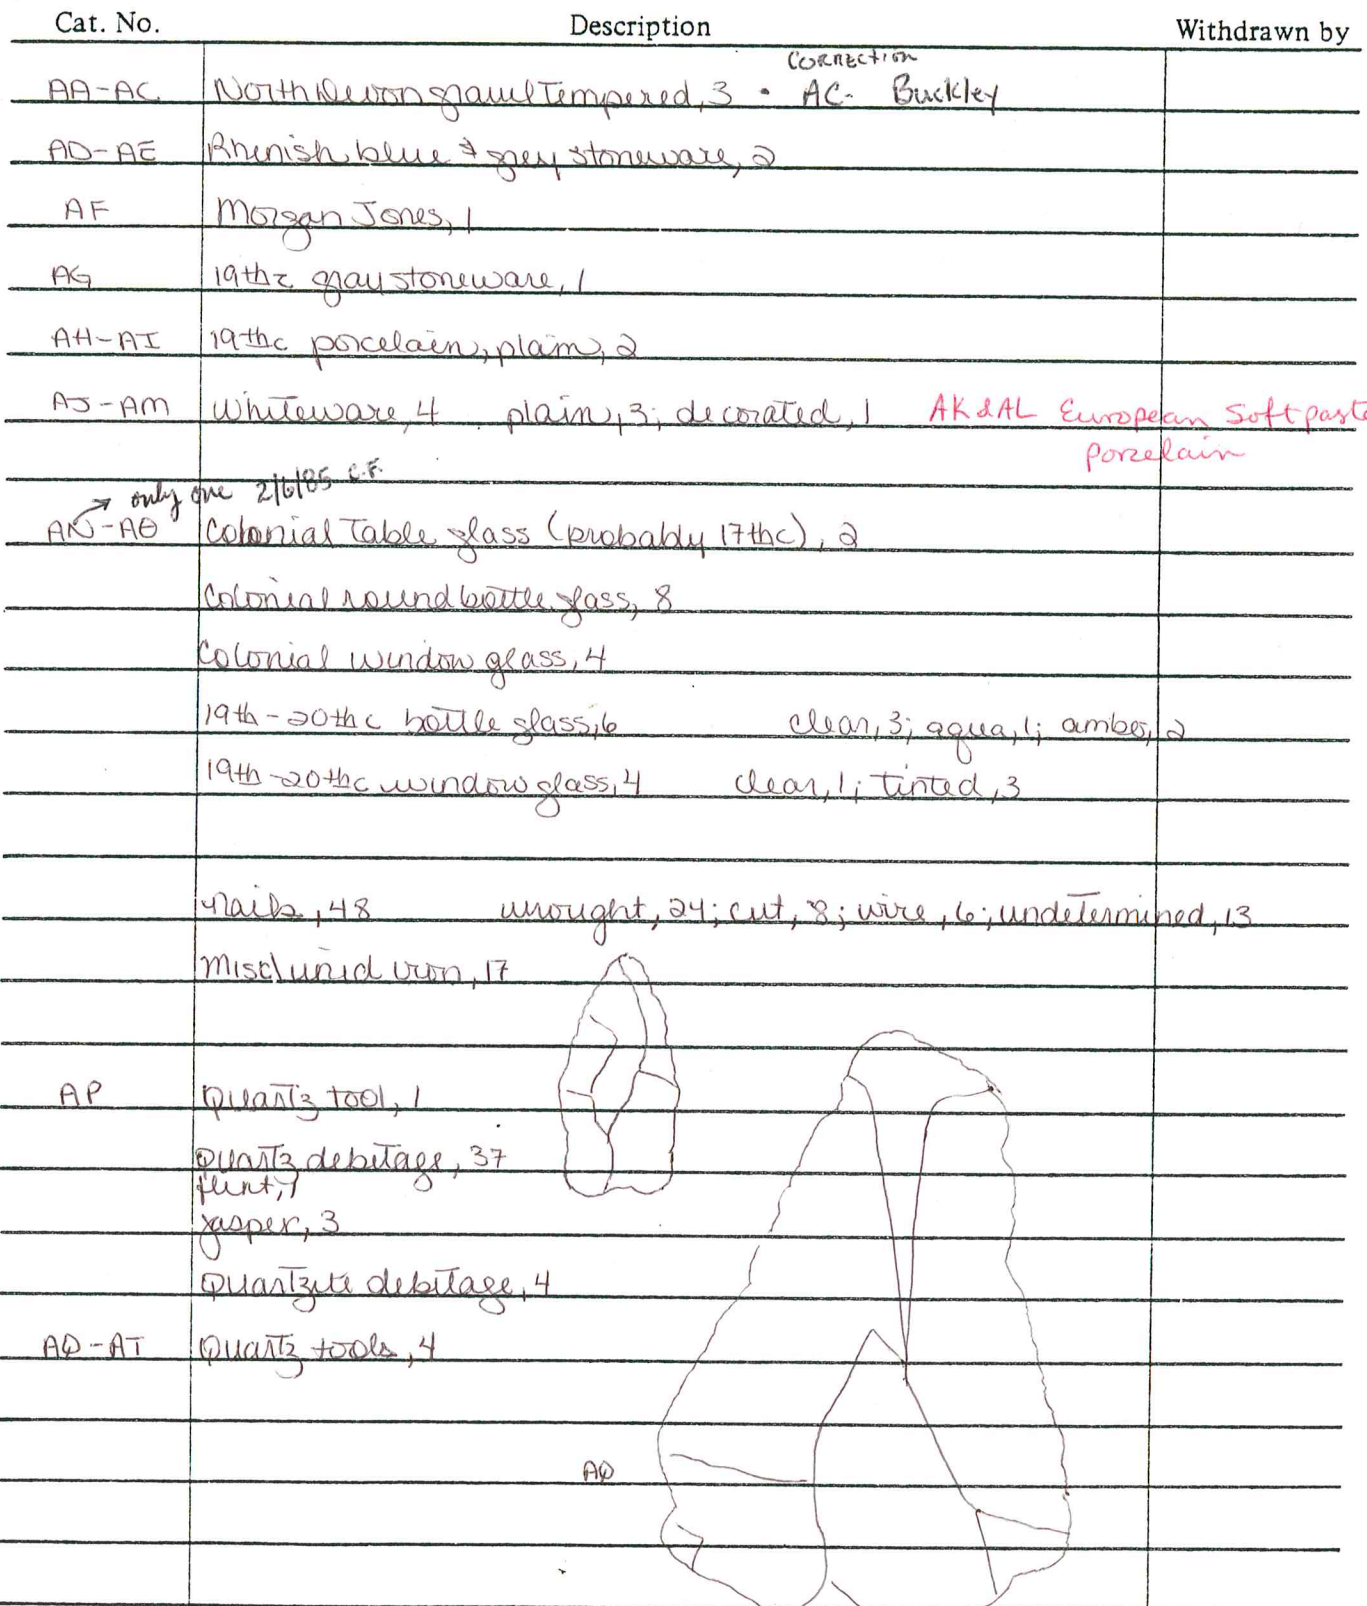 Cat. No. Description Withdrawn by
CORRECTION
AA-AC North Devon gravel Tempered, 3 • AC- Buckley
AD-AE Rhenish blue & grey stoneware, 2
AF Morgan Jones, 1
AG 19thc gray stoneware, 1
AH-AI 19thc porcelain, plain, 2
AJ-AM Whiteware, 4 plain, 3; decorated, 1 AK & AL European Soft paste
porzelain
only one 2/6/85 C.F.
AN-AO Colonial Table glass (probably 17thc), 2
Colonial round bottle glass, 8
Colonial window glass, 4
19th-20thc bottle glass, 6 clear, 3; aqua, 1; amber, 2
19th-20thc window glass, 4 clear, 1; tinted, 3
nails, 48 wrought, 24; cut, 8; wire, 6; undetermined, 13
Misc/unid iron, 17
AP Quartz tool, 1
Quartz debitage, 37
flint, 1
jasper, 3
Quartzite debitage, 4
AQ-AT Quartz tools, 4
AQ